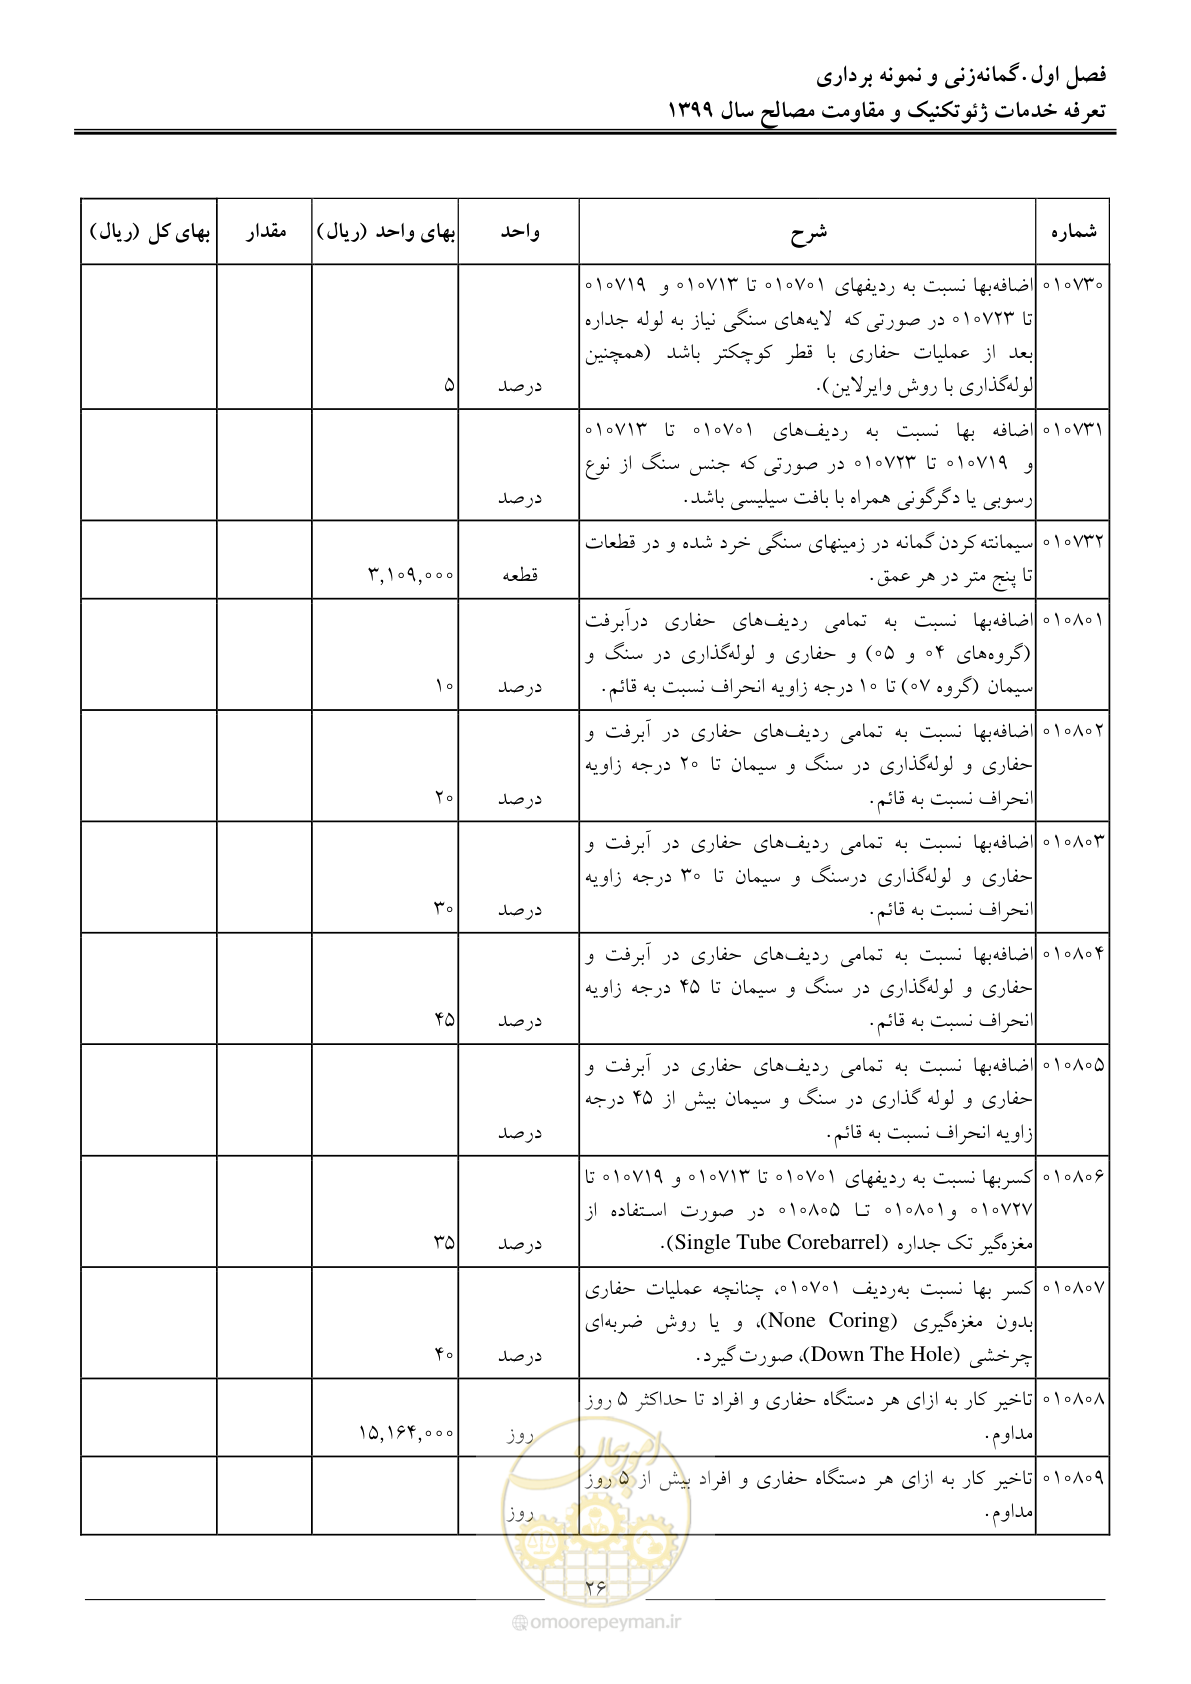 فصل اول. گمانه‌زنی و نمونه برداری
تعرفه خدمات ژئوتکنیک و مقاومت مصالح سال ۱۳۹۹
شماره شرح واحد بهای واحد (ریال) مقدار بهای کل (ریال)
۰۱۰۷۳۰ اضافه‌بها نسبت به ردیفهای ۰۱۰۷۰۱ تا ۰۱۰۷۱۳ و ۰۱۰۷۱۹
تا ۰۱۰۷۲۳ در صورتی که لایه‌های سنگی نیاز به لوله جداره
بعد از عملیات حفاری با قطر کوچکتر باشد (همچنین
لوله‌گذاری با روش وایرلاین). درصد ۵
۰۱۰۷۳۱ اضافه بها نسبت به ردیف‌های ۰۱۰۷۰۱ تا ۰۱۰۷۱۳
و ۰۱۰۷۱۹ تا ۰۱۰۷۲۳ در صورتی که جنس سنگ از نوع
رسوبی یا دگرگونی همراه با بافت سیلیسی باشد. درصد
۰۱۰۷۳۲ سیمانته کردن گمانه در زمینهای سنگی خرد شده و در قطعات
تا پنج متر در هر عمق. قطعه ۳,۱۰۹,۰۰۰
۰۱۰۸۰۱ اضافه‌بها نسبت به تمامی ردیف‌های حفاری درآبرفت
(گروه‌های ۰۴ و ۰۵) و حفاری و لوله‌گذاری در سنگ و
سیمان (گروه ۰۷) تا ۱۰ درجه زاویه انحراف نسبت به قائم. درصد ۱۰
۰۱۰۸۰۲ اضافه‌بها نسبت به تمامی ردیف‌های حفاری در آبرفت و
حفاری و لوله‌گذاری در سنگ و سیمان تا ۲۰ درجه زاویه
انحراف نسبت به قائم. درصد ۲۰
۰۱۰۸۰۳ اضافه‌بها نسبت به تمامی ردیف‌های حفاری در آبرفت و
حفاری و لوله‌گذاری درسنگ و سیمان تا ۳۰ درجه زاویه
انحراف نسبت به قائم. درصد ۳۰
۰۱۰۸۰۴ اضافه‌بها نسبت به تمامی ردیف‌های حفاری در آبرفت و
حفاری و لوله‌گذاری در سنگ و سیمان تا ۴۵ درجه زاویه
انحراف نسبت به قائم. درصد ۴۵
۰۱۰۸۰۵ اضافه‌بها نسبت به تمامی ردیف‌های حفاری در آبرفت و
حفاری و لوله گذاری در سنگ و سیمان بیش از ۴۵ درجه
زاویه انحراف نسبت به قائم. درصد
۰۱۰۸۰۶ کسربها نسبت به ردیفهای ۰۱۰۷۰۱ تا ۰۱۰۷۱۳ و ۰۱۰۷۱۹ تا
۰۱۰۷۲۷ و۰۱۰۸۰۱ تا ۰۱۰۸۰۵ در صورت استفاده از
مغزه‌گیر تک جداره (Single Tube Corebarrel). درصد ۳۵
۰۱۰۸۰۷ کسر بها نسبت به‌ردیف ۰۱۰۷۰۱، چنانچه عملیات حفاری
بدون مغزه‌گیری (None Coring)، و یا روش ضربه‌ای
چرخشی (Down The Hole)، صورت گیرد. درصد ۴۰
۰۱۰۸۰۸ تاخیر کار به ازای هر دستگاه حفاری و افراد تا حداکثر ۵ روز
مداوم. روز ۱۵,۱۶۴,۰۰۰
۰۱۰۸۰۹ تاخیر کار به ازای هر دستگاه حفاری و افراد بیش از ۵ روز
مداوم. روز
امور پیمان
۲۶
omoorepeyman.ir